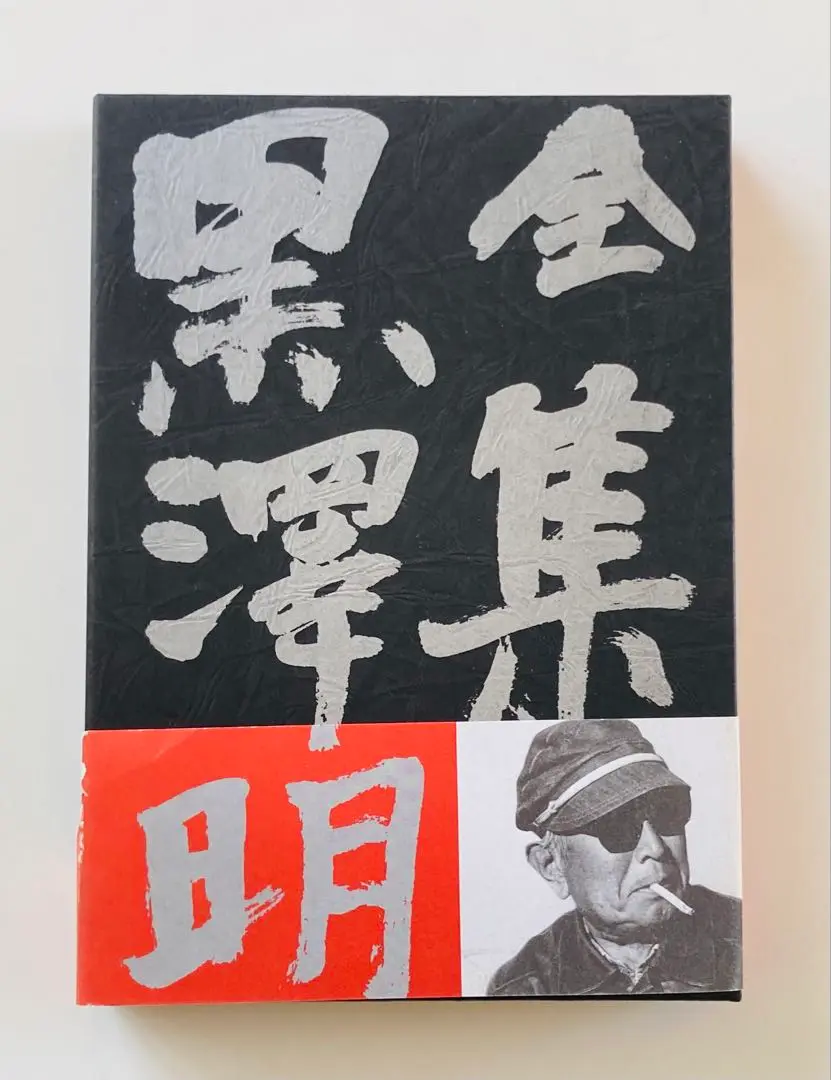 黒澤明
全集